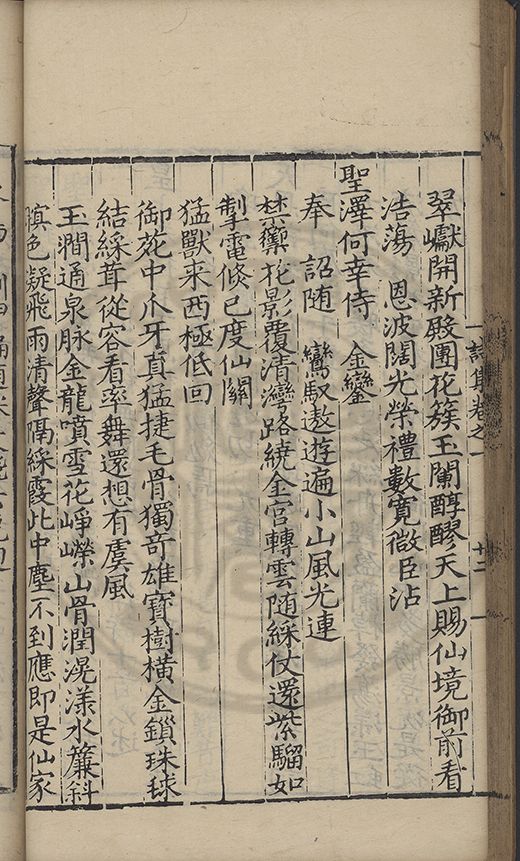 翠巘開新殿團花簇玉闌醇醪天上賜仙境御前看
浩蕩　恩波闊光榮禮數寬微臣沾
聖澤何幸侍　金鑾
奉　詔随　鸞馭遨遊遍小山風光連
禁籞花影覆清灣路繞金宮轉雲随綵仗還紫騮如
掣電倐已度仙關
猛獸来西極低回
御苑中爪牙真猛捷毛骨獨竒雄寶樹橫金鎖珠毬
結綵茸從容看率舞還想有虞風
玉澗通泉脉金龍噴雪花崢嶸山骨潤滉漾水簾斜
暝色凝飛雨清聲隔綵霞此中塵不到應即是仙家
詩集卷之一
十二